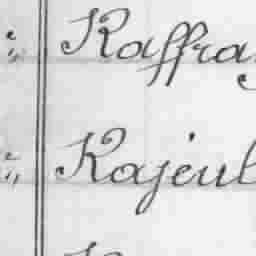 Kaffra
Kajeul